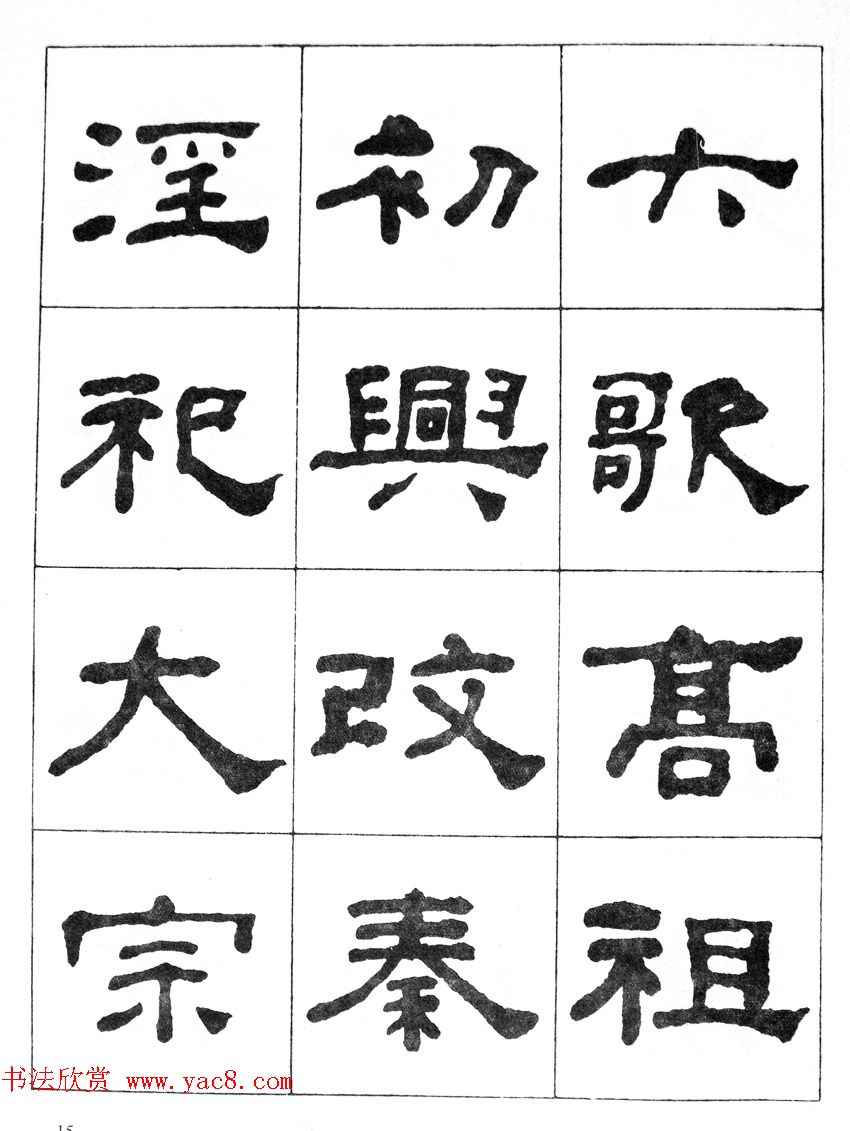 六歌高祖
初興改秦
淫祀大宗
书法欣赏 www.yac8.com
15